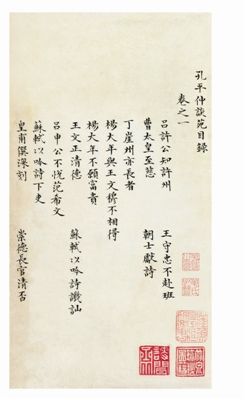 孔平仲談苑目錄
卷之一
呂許公知許州 王守忠不赴班
曹太皇至慈 朝士獻詩
丁崖州亦長者
楊大年與王文穆不相得
楊大年不願富貴
王文正清德 蘇軾以吟詩譏訕
呂申公不悅范希文
蘇軾以吟詩下吏
皇甫僎深刻 崇德長官清否